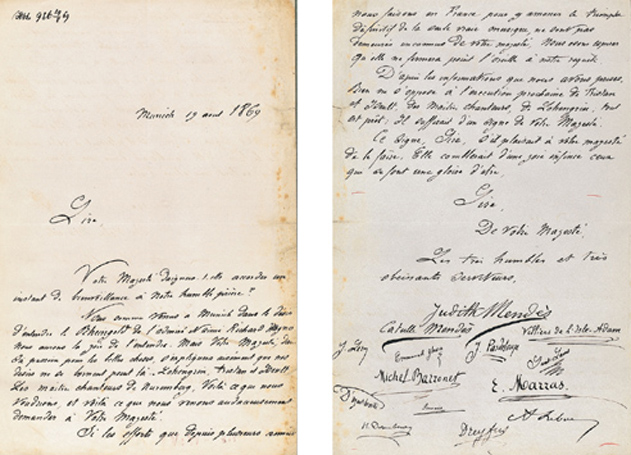 Munich 19 aout 1869
Sire,
Votre Majesté daignera-t-elle accorder un
instant de bienveillance à notre humble prière?
Nous sommes venus à Munich dans le désir
d'entendre le Rheingold de Richard Wagner
nous avons la joie de l'entendre. Mais Votre Majesté, dont
la passion pour les belles choses, s'expliquera aisément que nos
désirs ne se bornent pas là. Lohengrin, Tristan et Iseult,
Les maitres chanteurs de Nuremberg, Voilà ce que nous
voudrions, et voilà ce que nous venons audacieusement
demander à Votre Majesté.
Si les efforts que depuis plusieurs années
nous faisons en France pour y amener le triomphe
définitif de la seule vraie musique, ne sont pas
demeurés inconnus de votre majesté, Nous osons espérer
qu'elle ne fermera point l'oreille à notre requête.
D'après les informations que nous avons prises,
Rien ne s'oppose à l'exécution prochaine de Tristan
et Iseult, des Maitres chanteurs, de Lohengrin, tout
est prêt. Il suffirait d'un signe de Votre Majesté.
Ce signe, Sire, s'il plaisait à votre majesté
de le faire, Elle comblerait d'une joie infinie ceux
qui se font une gloire d'être,
Sire,
De Votre Majesté
Les très humbles et très
obéissants serviteurs,
Judith Mendès
Catulle Mendès
Villiers de l'Isle Adam
Michel Baronnet
E. Marras.
Dreyfus